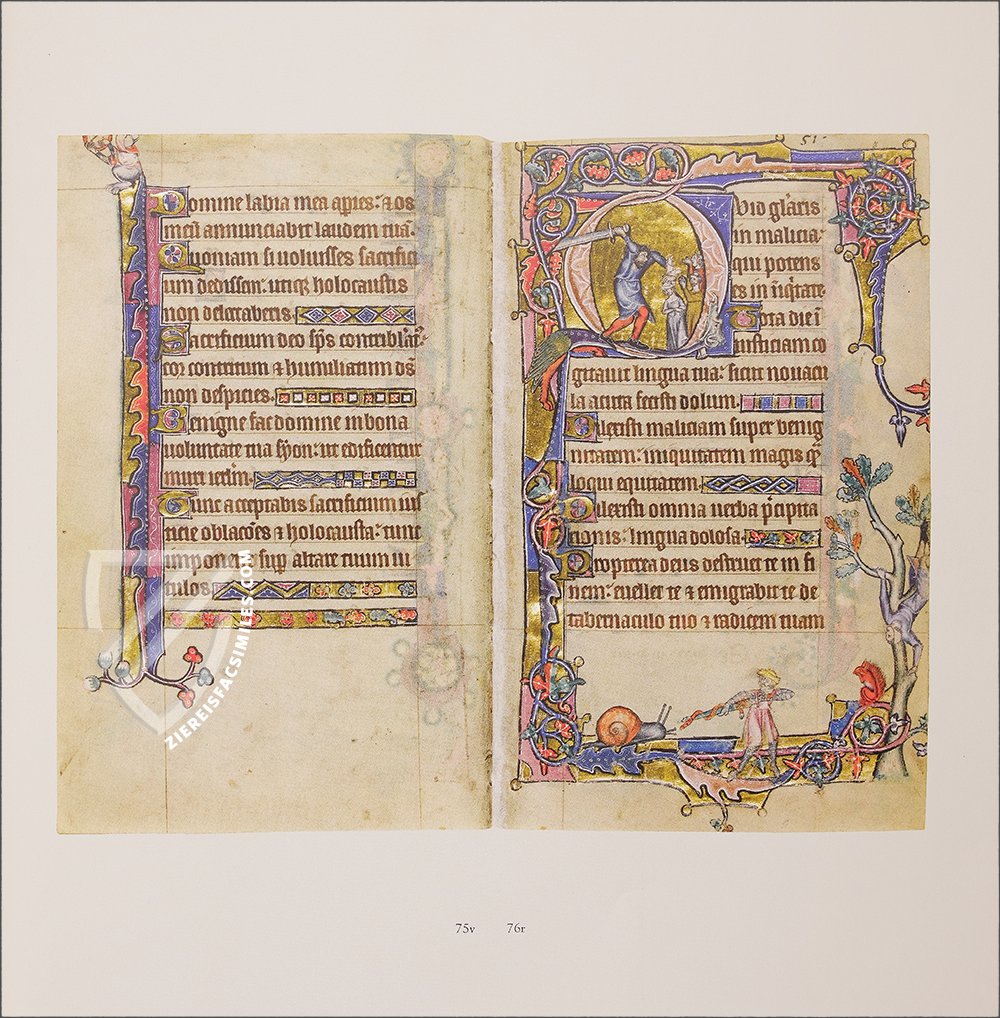 Domine labia mea ap̄ies: ⁊ os
meū annunciabit laudem tuā.
Quoniam si voluisses sacrifici
um dedissem: utiqꝫ holocaustis
non delectaberis.
Sacrificium deo sp̄s contribulat᷒:
cor contritum ⁊ humiliatum ds̄
non despicies.
Benigne fac domine in bona
voluntate tua syon: ut edificentur
muri ierlm̄.
Tunc acceptabis sacrificium ius
ticie oblacōes ⁊ holocausta: tunc
imponent sup altare tuum ui
tulos
51
Quid glāris
in malicia:
qui potens
es in īiq̄tate.
Tota die ī
iusticiam co
gitauit lingua tua: sicut nouacu
la acuta fecisti dolum.
Dilexisti maliciam super benig
nitatem: iniquitatem magis q̄
loqui equitatem.
Dilexisti omnia uerba p̄cipita
cionis: lingua dolosa.
Propterea deus destruet te in fi
nem: euellet te ⁊ emigrabit te de
tabernaculo tuo ⁊ radicem tuam
ZIEREISFACSIMILES.COM
75v 76r